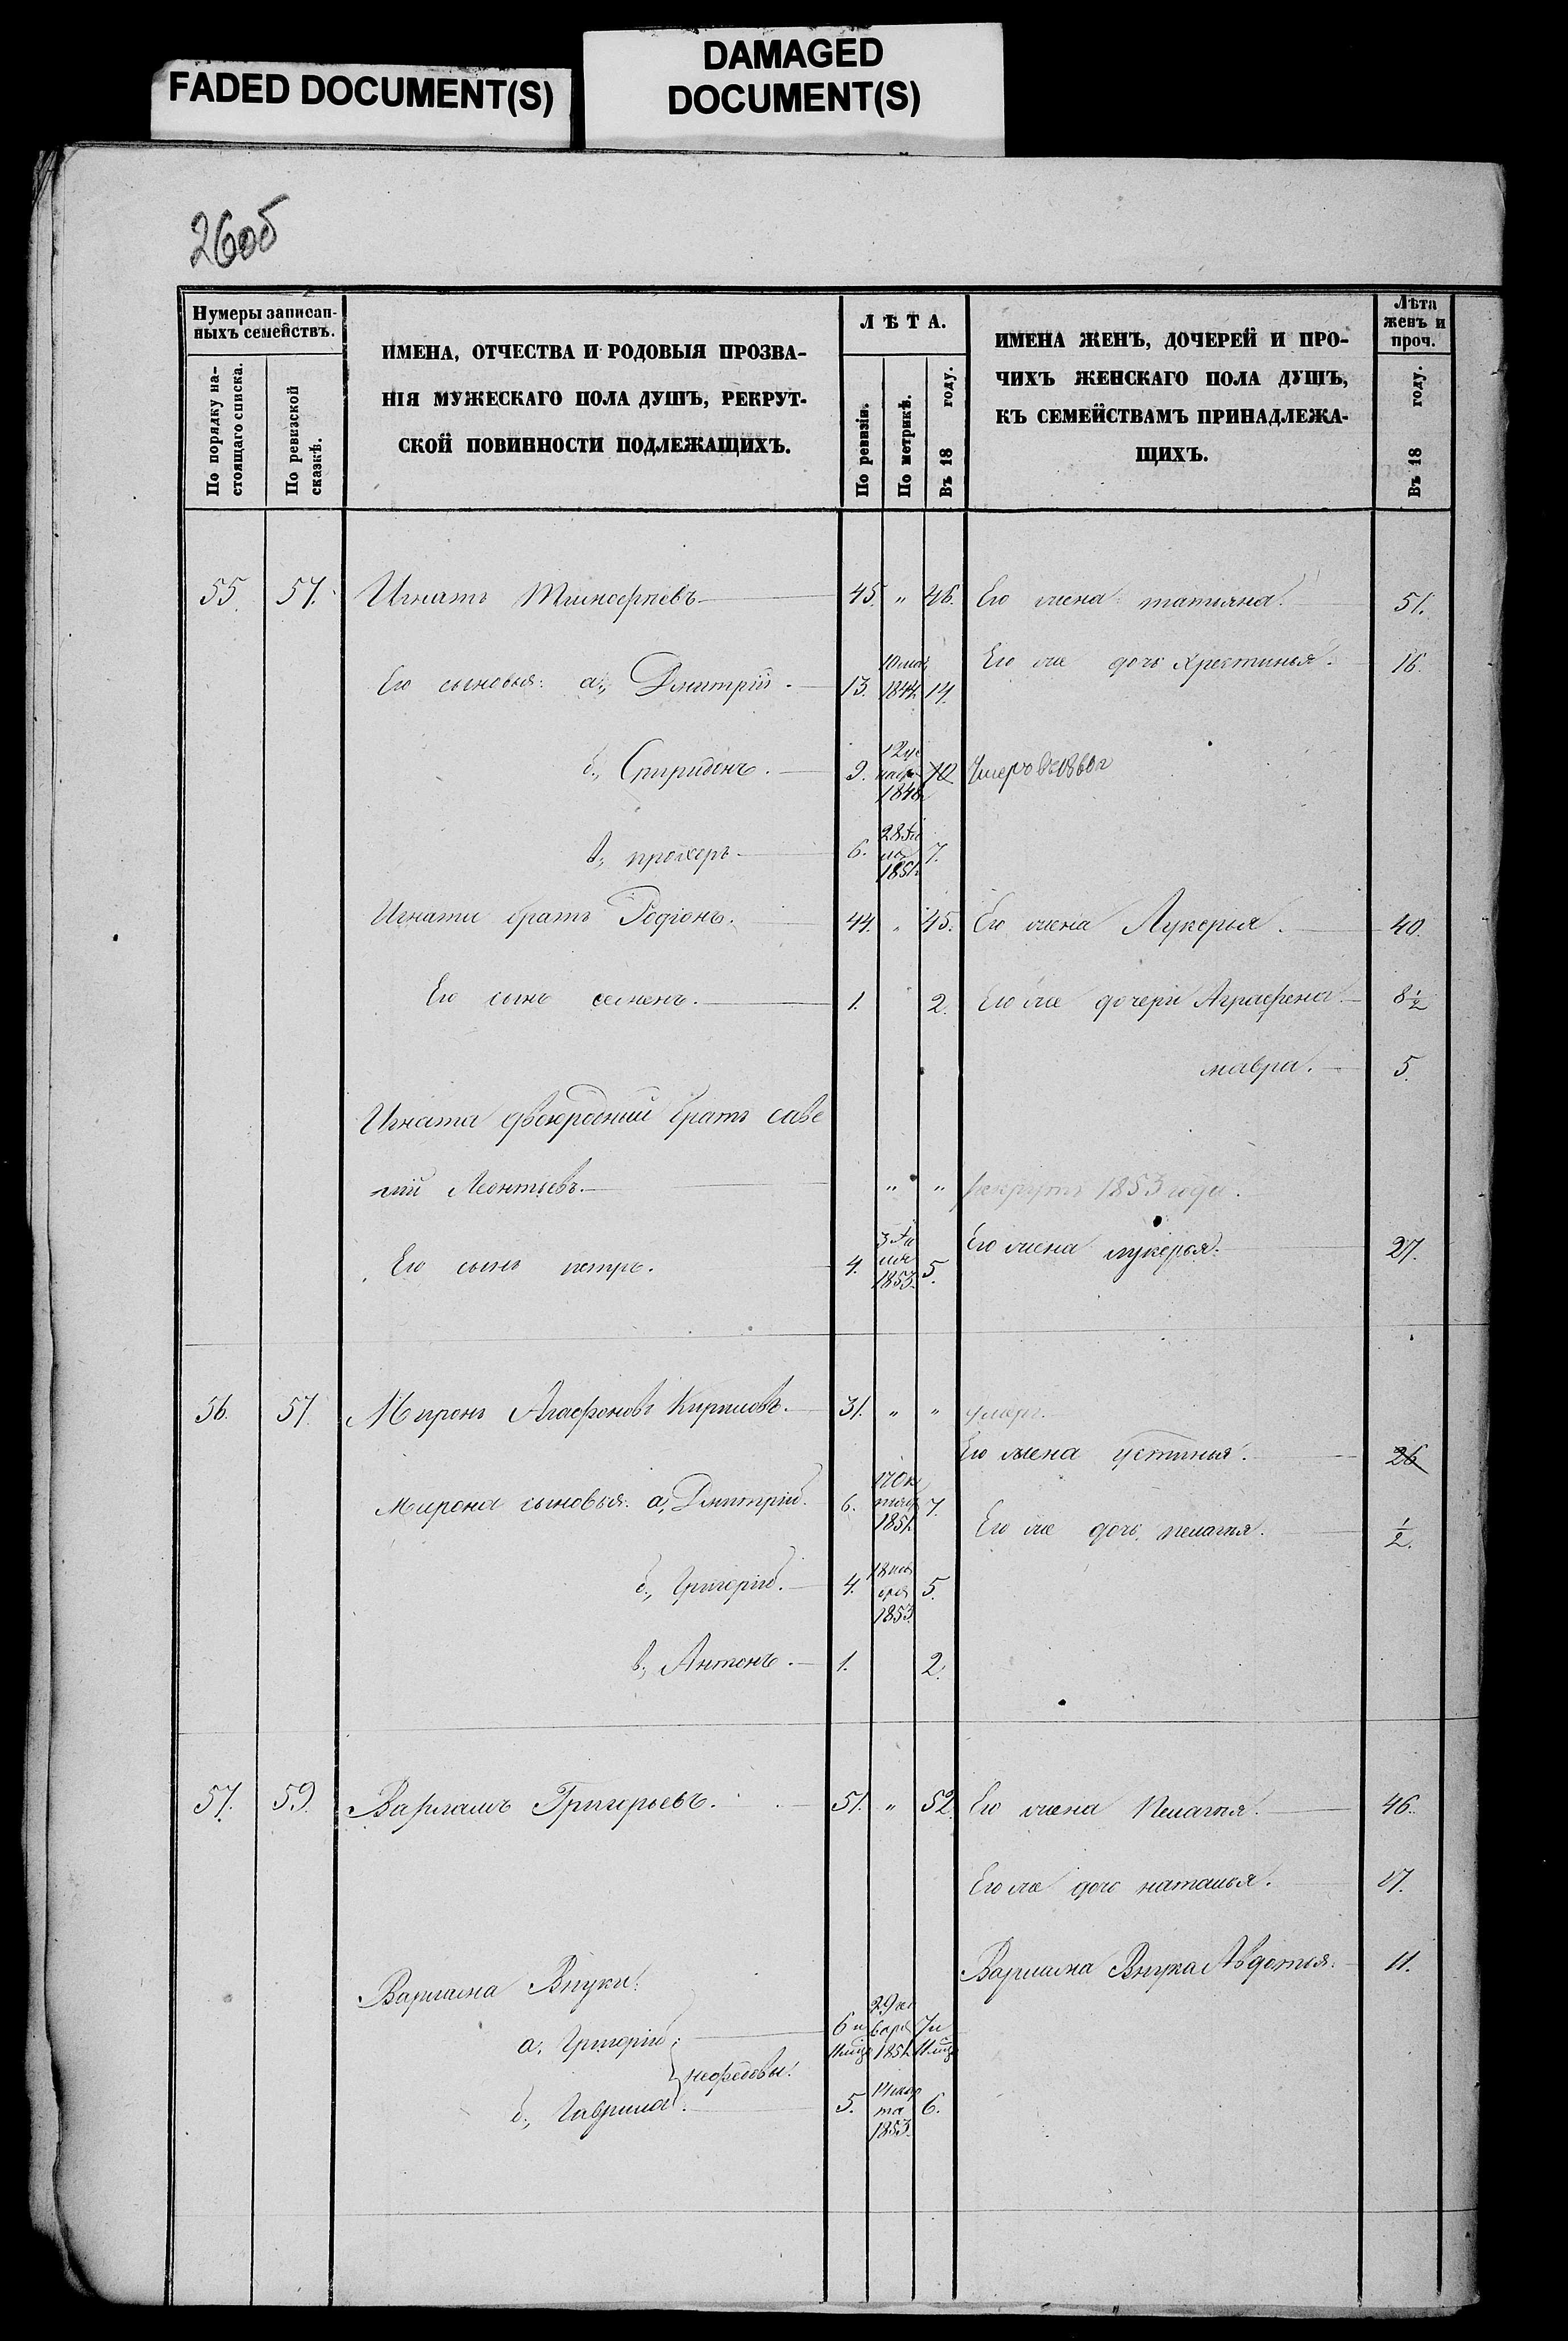 FADED DOCUMENT(S)
DAMAGED
DOCUMENT(S)
26об
Нумеры записан-
ныхъ семействъ.
По порядку на-
стоящаго списка.
По ревизской
сказкѣ.
ИМЕНА, ОТЧЕСТВА И РОДОВЫЯ ПРОЗВА-
НІЯ МУЖЕСКАГО ПОЛА ДУШЪ, РЕКРУТ-
СКОЙ ПОВИННОСТИ ПОДЛЕЖАЩИХЪ.
ЛѢТА.
По ревизіи.
По метрикѣ.
Въ 18 году.
ИМЕНА ЖЕНЪ, ДОЧЕРЕЙ И ПРО-
ЧИХЪ ЖЕНСКАГО ПОЛА ДУШЪ,
КЪ СЕМЕЙСТВАМЪ ПРИНАДЛЕЖА-
ЩИХЪ.
Лѣта
женъ и
проч.
Въ 18 году.
55. 57. Игнатъ Тимофеевъ 45. " 46. Его жена татьяна. 51.
Его же дочь Хрестинья. 16.
Его сыновья: а., Дмитрій. 13. 1844 14.
б., Спиридонъ. 9. 1848 10 Умеръ въ 1860 г
в., прохоръ 6. 1851 7.
Игната братъ Родіонъ. 44. " 45. Его жена Лукерья. 40.
Его сынъ семенъ. 1. 2. Его же дочери Аграфена 8 1/2
мавра. 5.
Игната двоюродний братъ саве
лий Леонтьевъ. " " рекрутъ 1853 года.
Его жена лукерья. 27.
Его сынъ петръ. 4. 1853. 5.
56. 57 Миронъ Агафоновъ Кириловъ. 31. " " умеръ.
Его жена устинья. 26
Мирона сыновья: а., Дмитрій. 6. 17 Ок тяб 1851 7.
Его же дочь пелагея. 1/2.
б., Григорій. 4. 18 ноя бря 1853. 5.
в., Антонъ. 1. 2.
57. 59. Варламъ Григорьевъ. 51. " 52. Его жена Пелагея. 46.
Его же дочь наталья. 17.
Варлама Внука Авдотья. 11.
Варлама Внуки:
а., Григорій 6 и 11 мѣц 29 ян варя 1851 7 и 11 мѣц
нефедовы.
б., Гаврила. 5. 1853. 6.